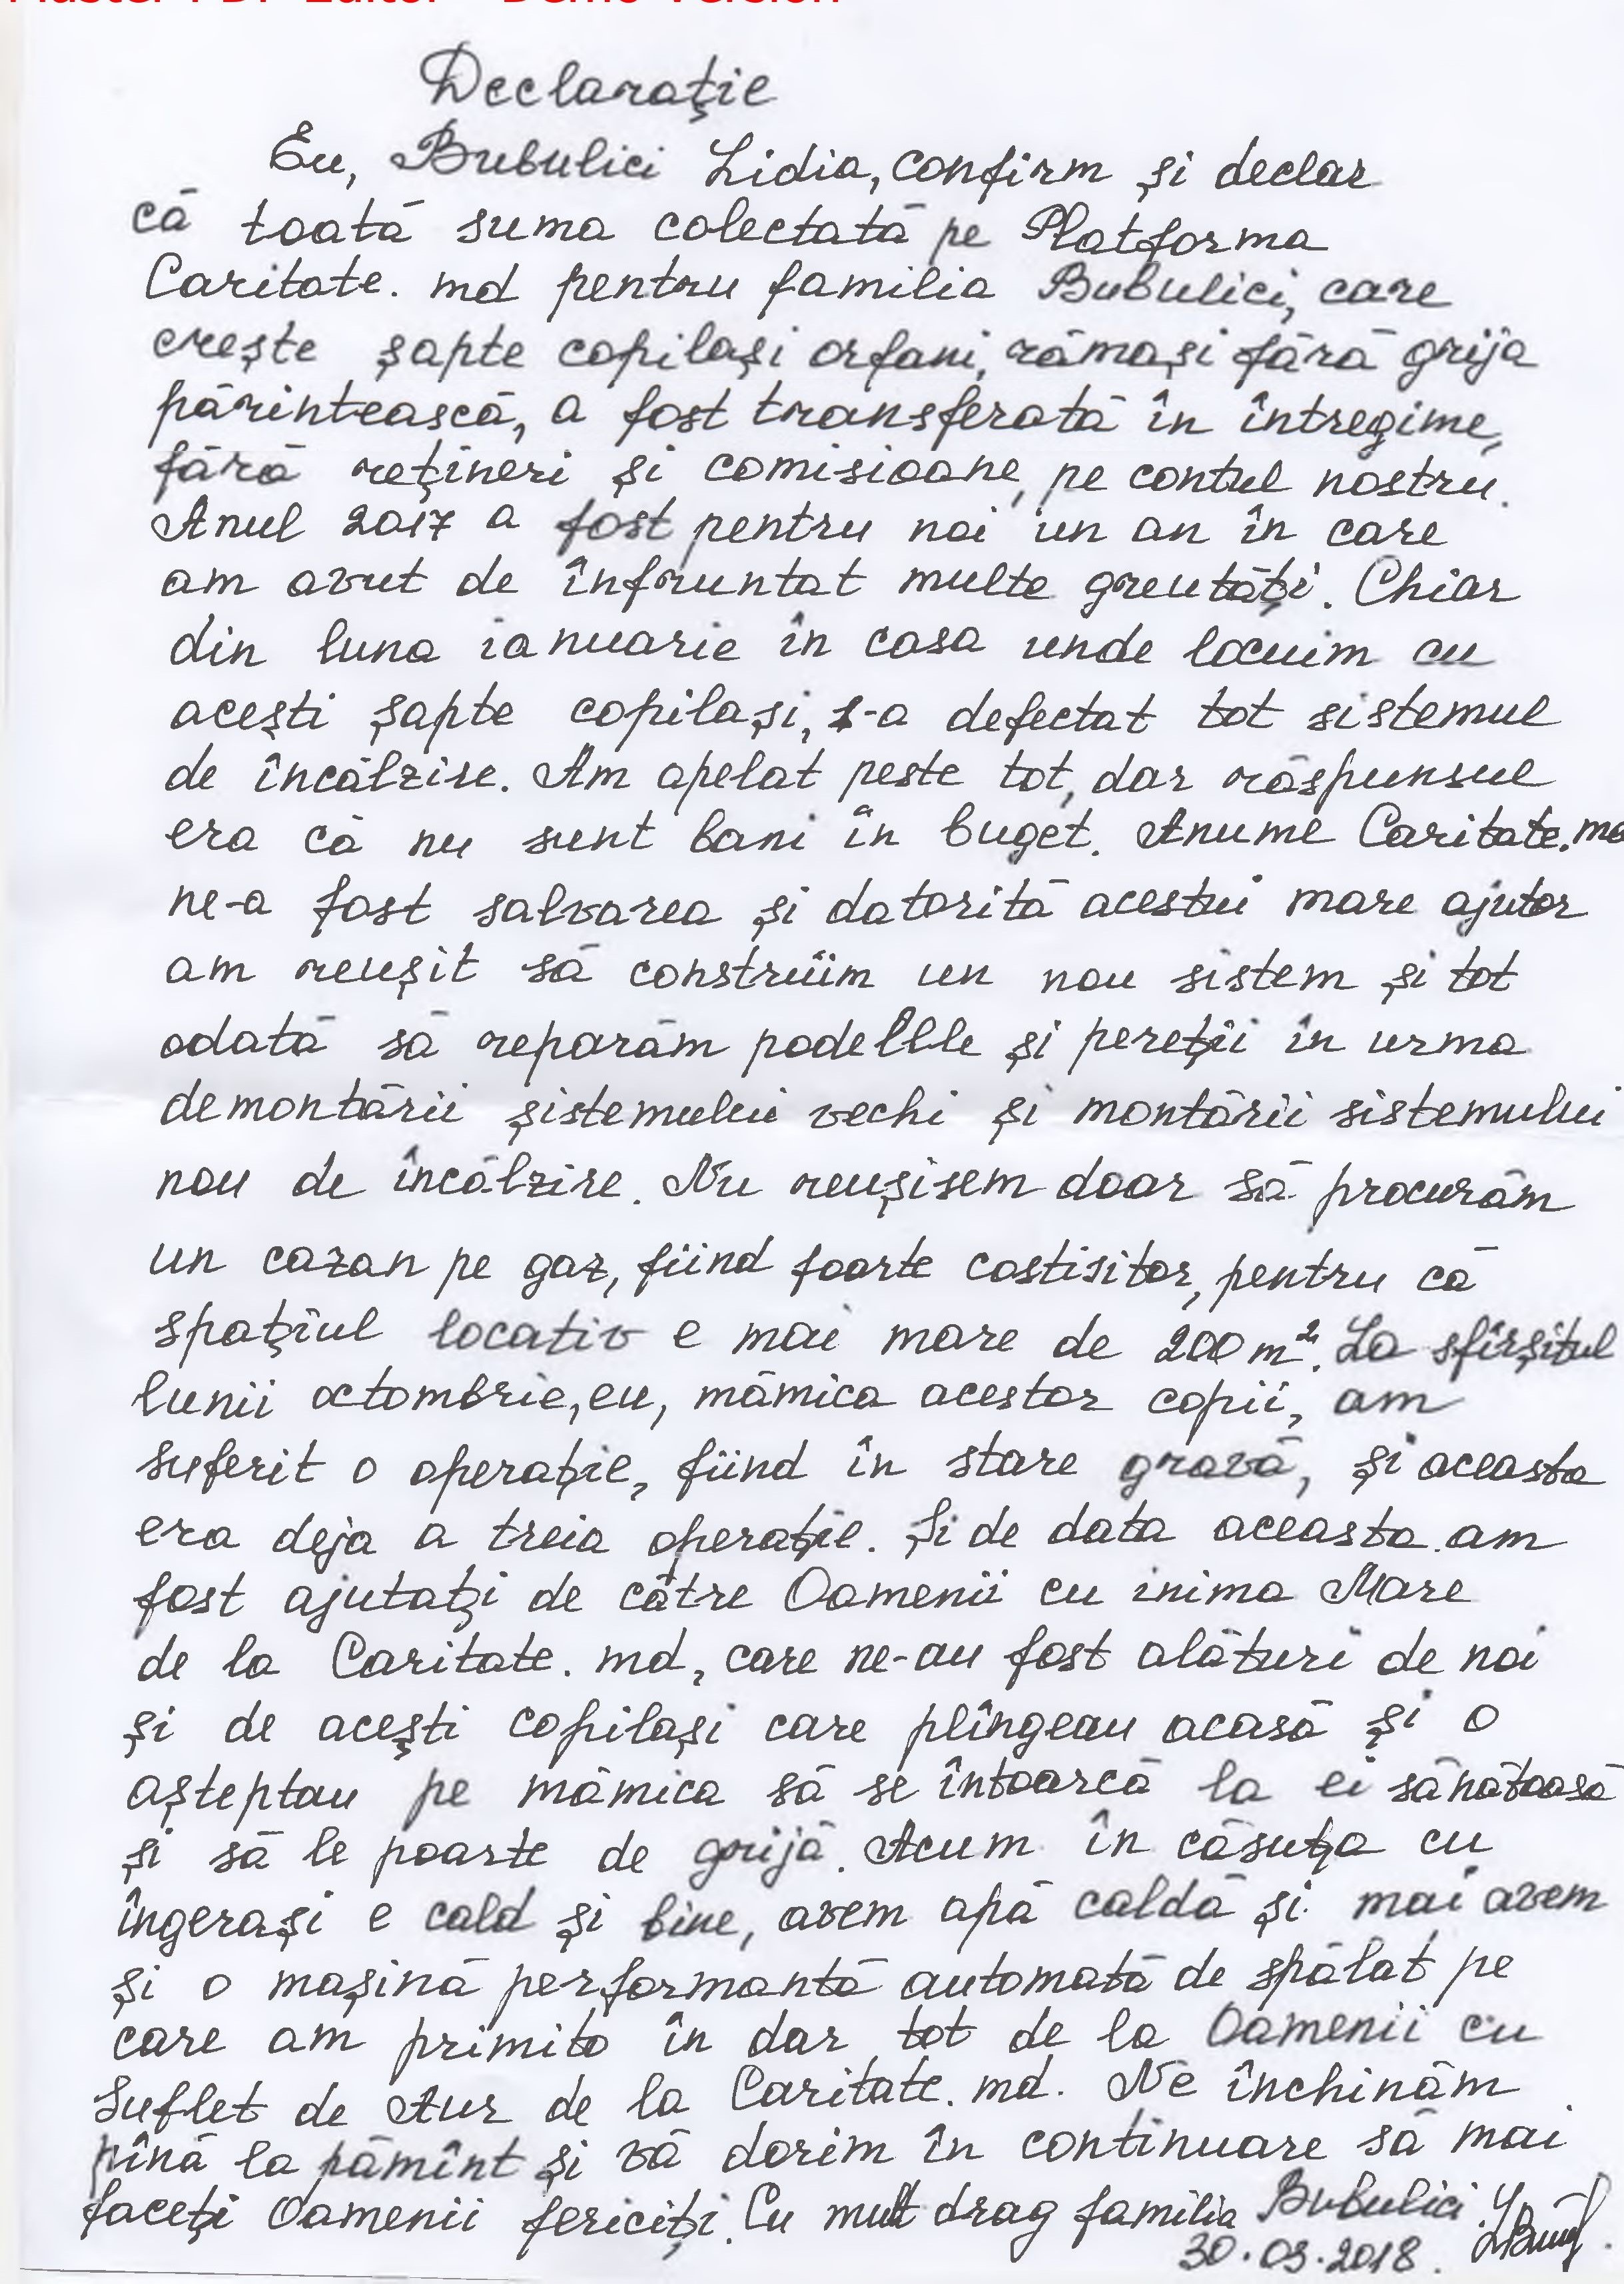 Master PDF Editor - Demo Version
Declarație
Eu, Bubulici Lidia, confirm și declar
că toată suma colectată pe Platforma
Caritate. md pentru familia Bubulici, care
crește șapte copilași orfani, rămași fără grija
părintească, a fost transferată în întregime,
fără rețineri și comisioane, pe contul nostru.
Anul 2017 a fost pentru noi un an în care
am avut de înfruntat multe greutăți. Chiar
din luna ianuarie în casa unde locuim cu
acești șapte copilași, s-a defectat tot sistemul
de încălzire. Am apelat peste tot, dar răspunsul
era că nu sunt bani în buget. Anume Caritate.md
ne-a fost salvarea și datorită acestui mare ajutor
am reușit să construim un nou sistem și tot
odată să reparăm podelele și pereții în urma
demontării șistemului vechi și montării sistemului
nou de încălzire. Nu reușisem doar să procurăm
un cazan pe gaz, fiind foarte costisitor, pentru că
spațiul locativ e mai mare de 200 m². La sfîrșitul
lunii octombrie, eu, mămica acestor copii, am
suferit o operație, fiind în stare gravă, și aceasta
era deja a treia operație. Și de data aceasta am
fost ajutați de către Oamenii cu inima Mare
de la Caritate. md, care ne-au fost alături de noi
și de acești copilași care plîngeau acasă și o
așteptau pe mămica să se întoarcă la ei sănătoasă
și să le poarte de grijă. Acum în căsuța cu
îngerași e cald și bine, avem apă caldă și mai avem
și o mașină performantă automată de spălat pe
care am primito în dar tot de la Oamenii cu
Suflet de Aur de la Caritate. md. Ne închinăm
pînă la pămînt și vă dorim în continuare să mai
faceți Oamenii fericiți. Cu mult drag familia Bubulici
30.03.2018.